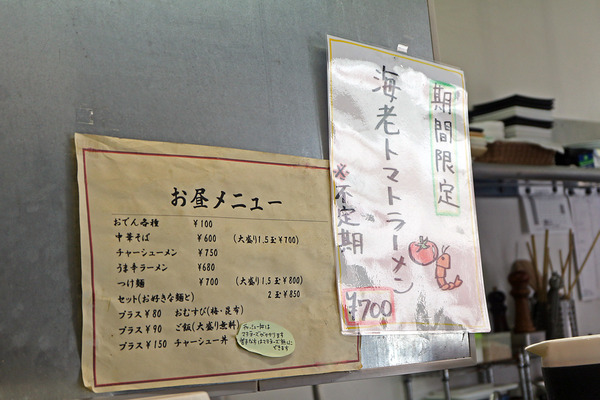 お昼メニュー
おでん各種 ¥100
中華そば ¥600 (大盛り1.5玉¥700)
チャーシューメン ¥750
うま辛ラーメン ¥680
つけ麺 ¥700 (大盛り1.5玉¥800)
2玉¥850
セット(お好きな麺と)
プラス¥80 おむすび(梅・昆布)
プラス¥90 ご飯(大盛り無料)
プラス¥150 チャーシュー丼
できます
期間限定
海老トマトラーメン
※不定期
¥700